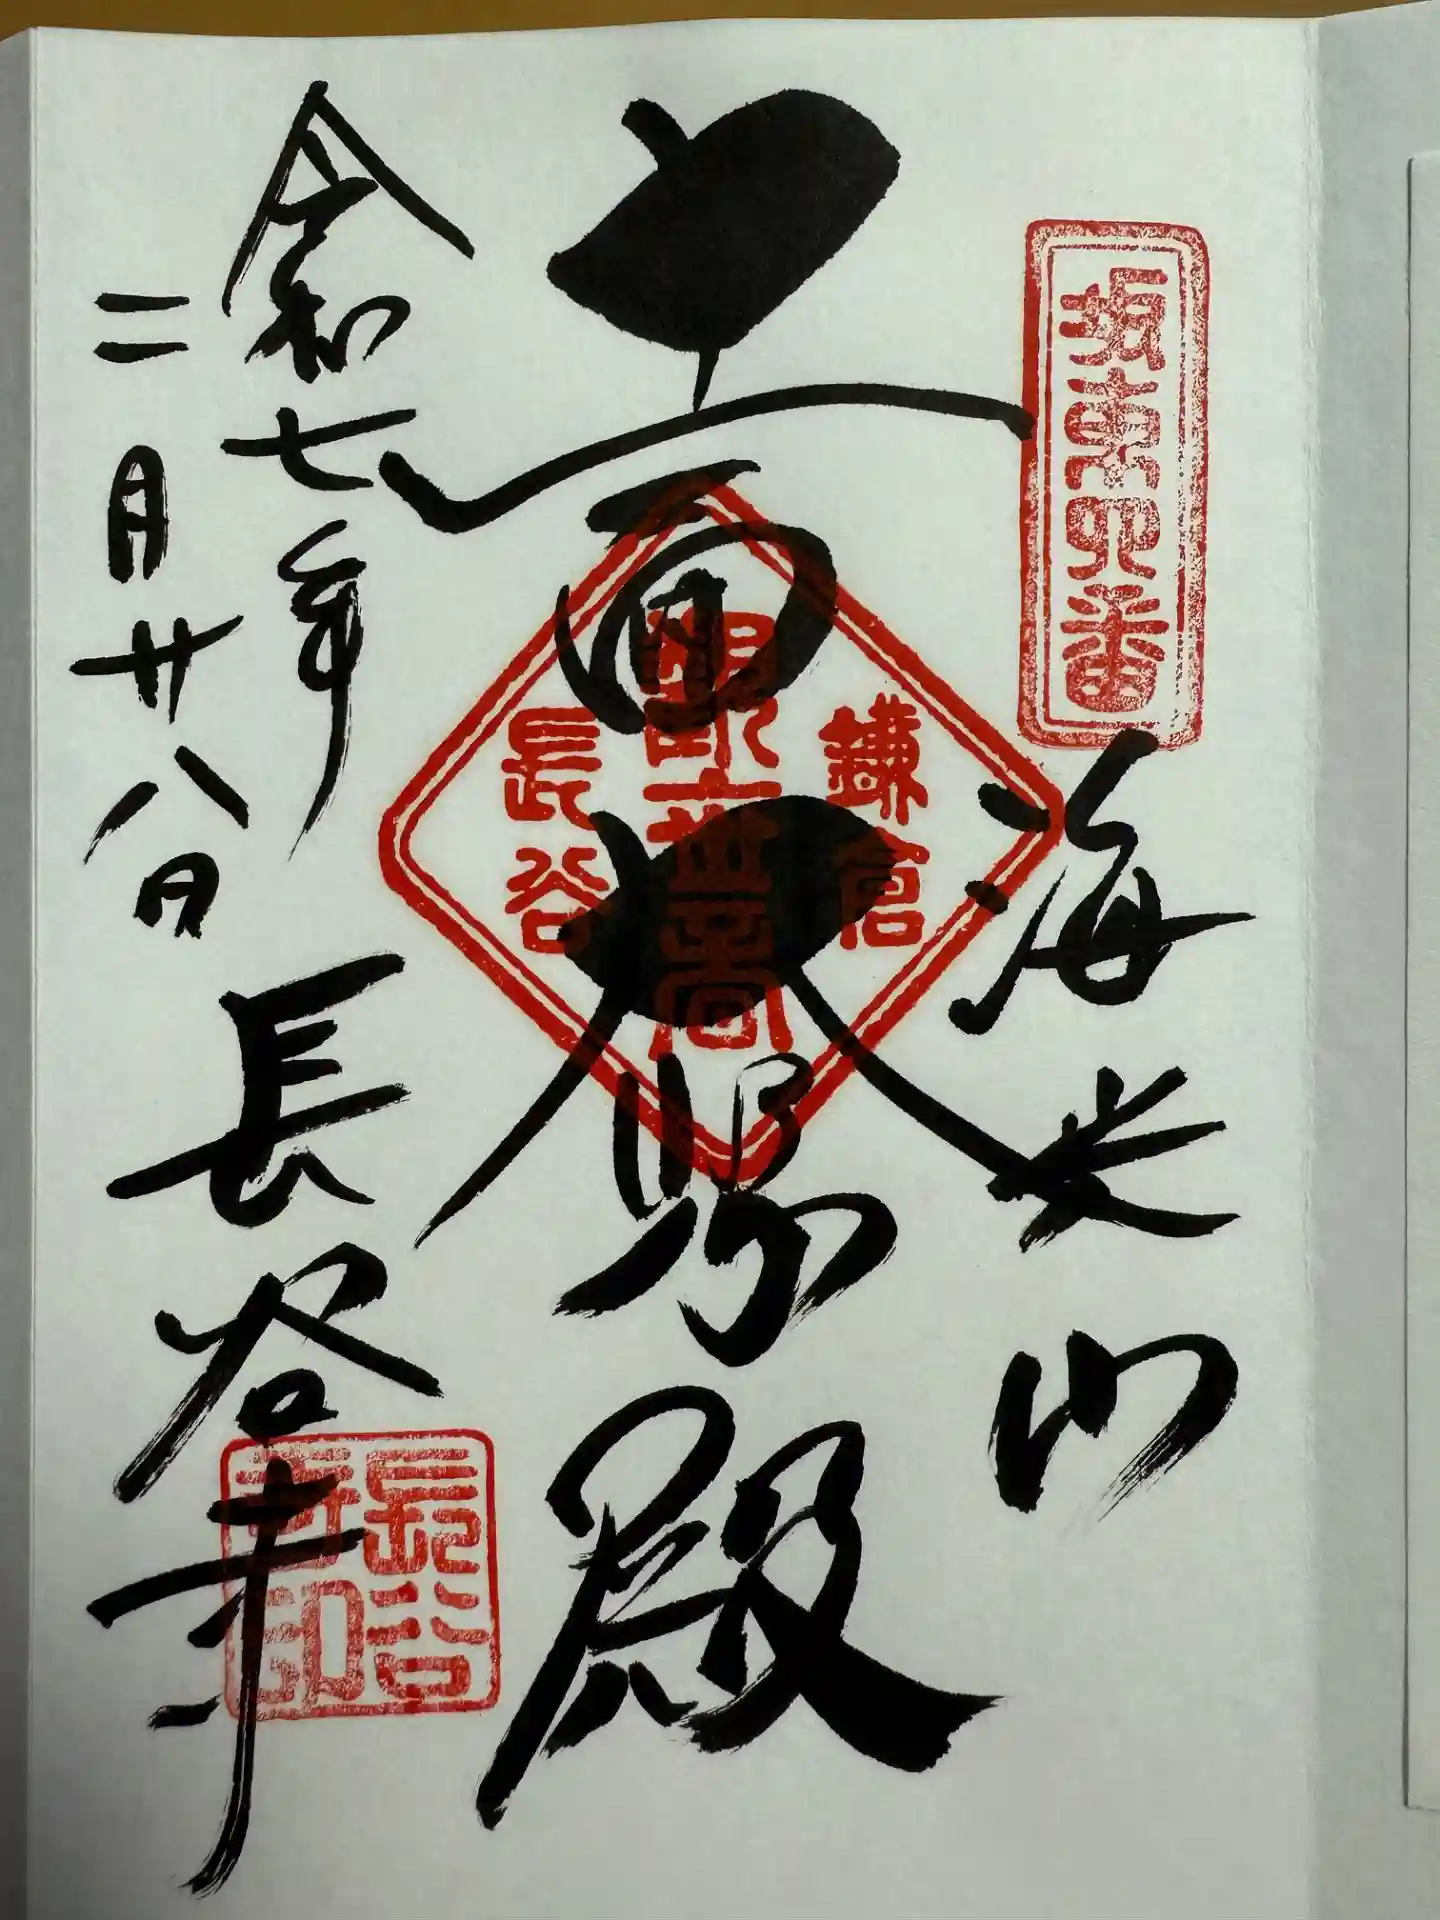 坂東四番
海光山
十一面大悲殿
鎌倉
觀世音
長谷
令和七年
二月廿八日
長谷寺
長谷
寺印